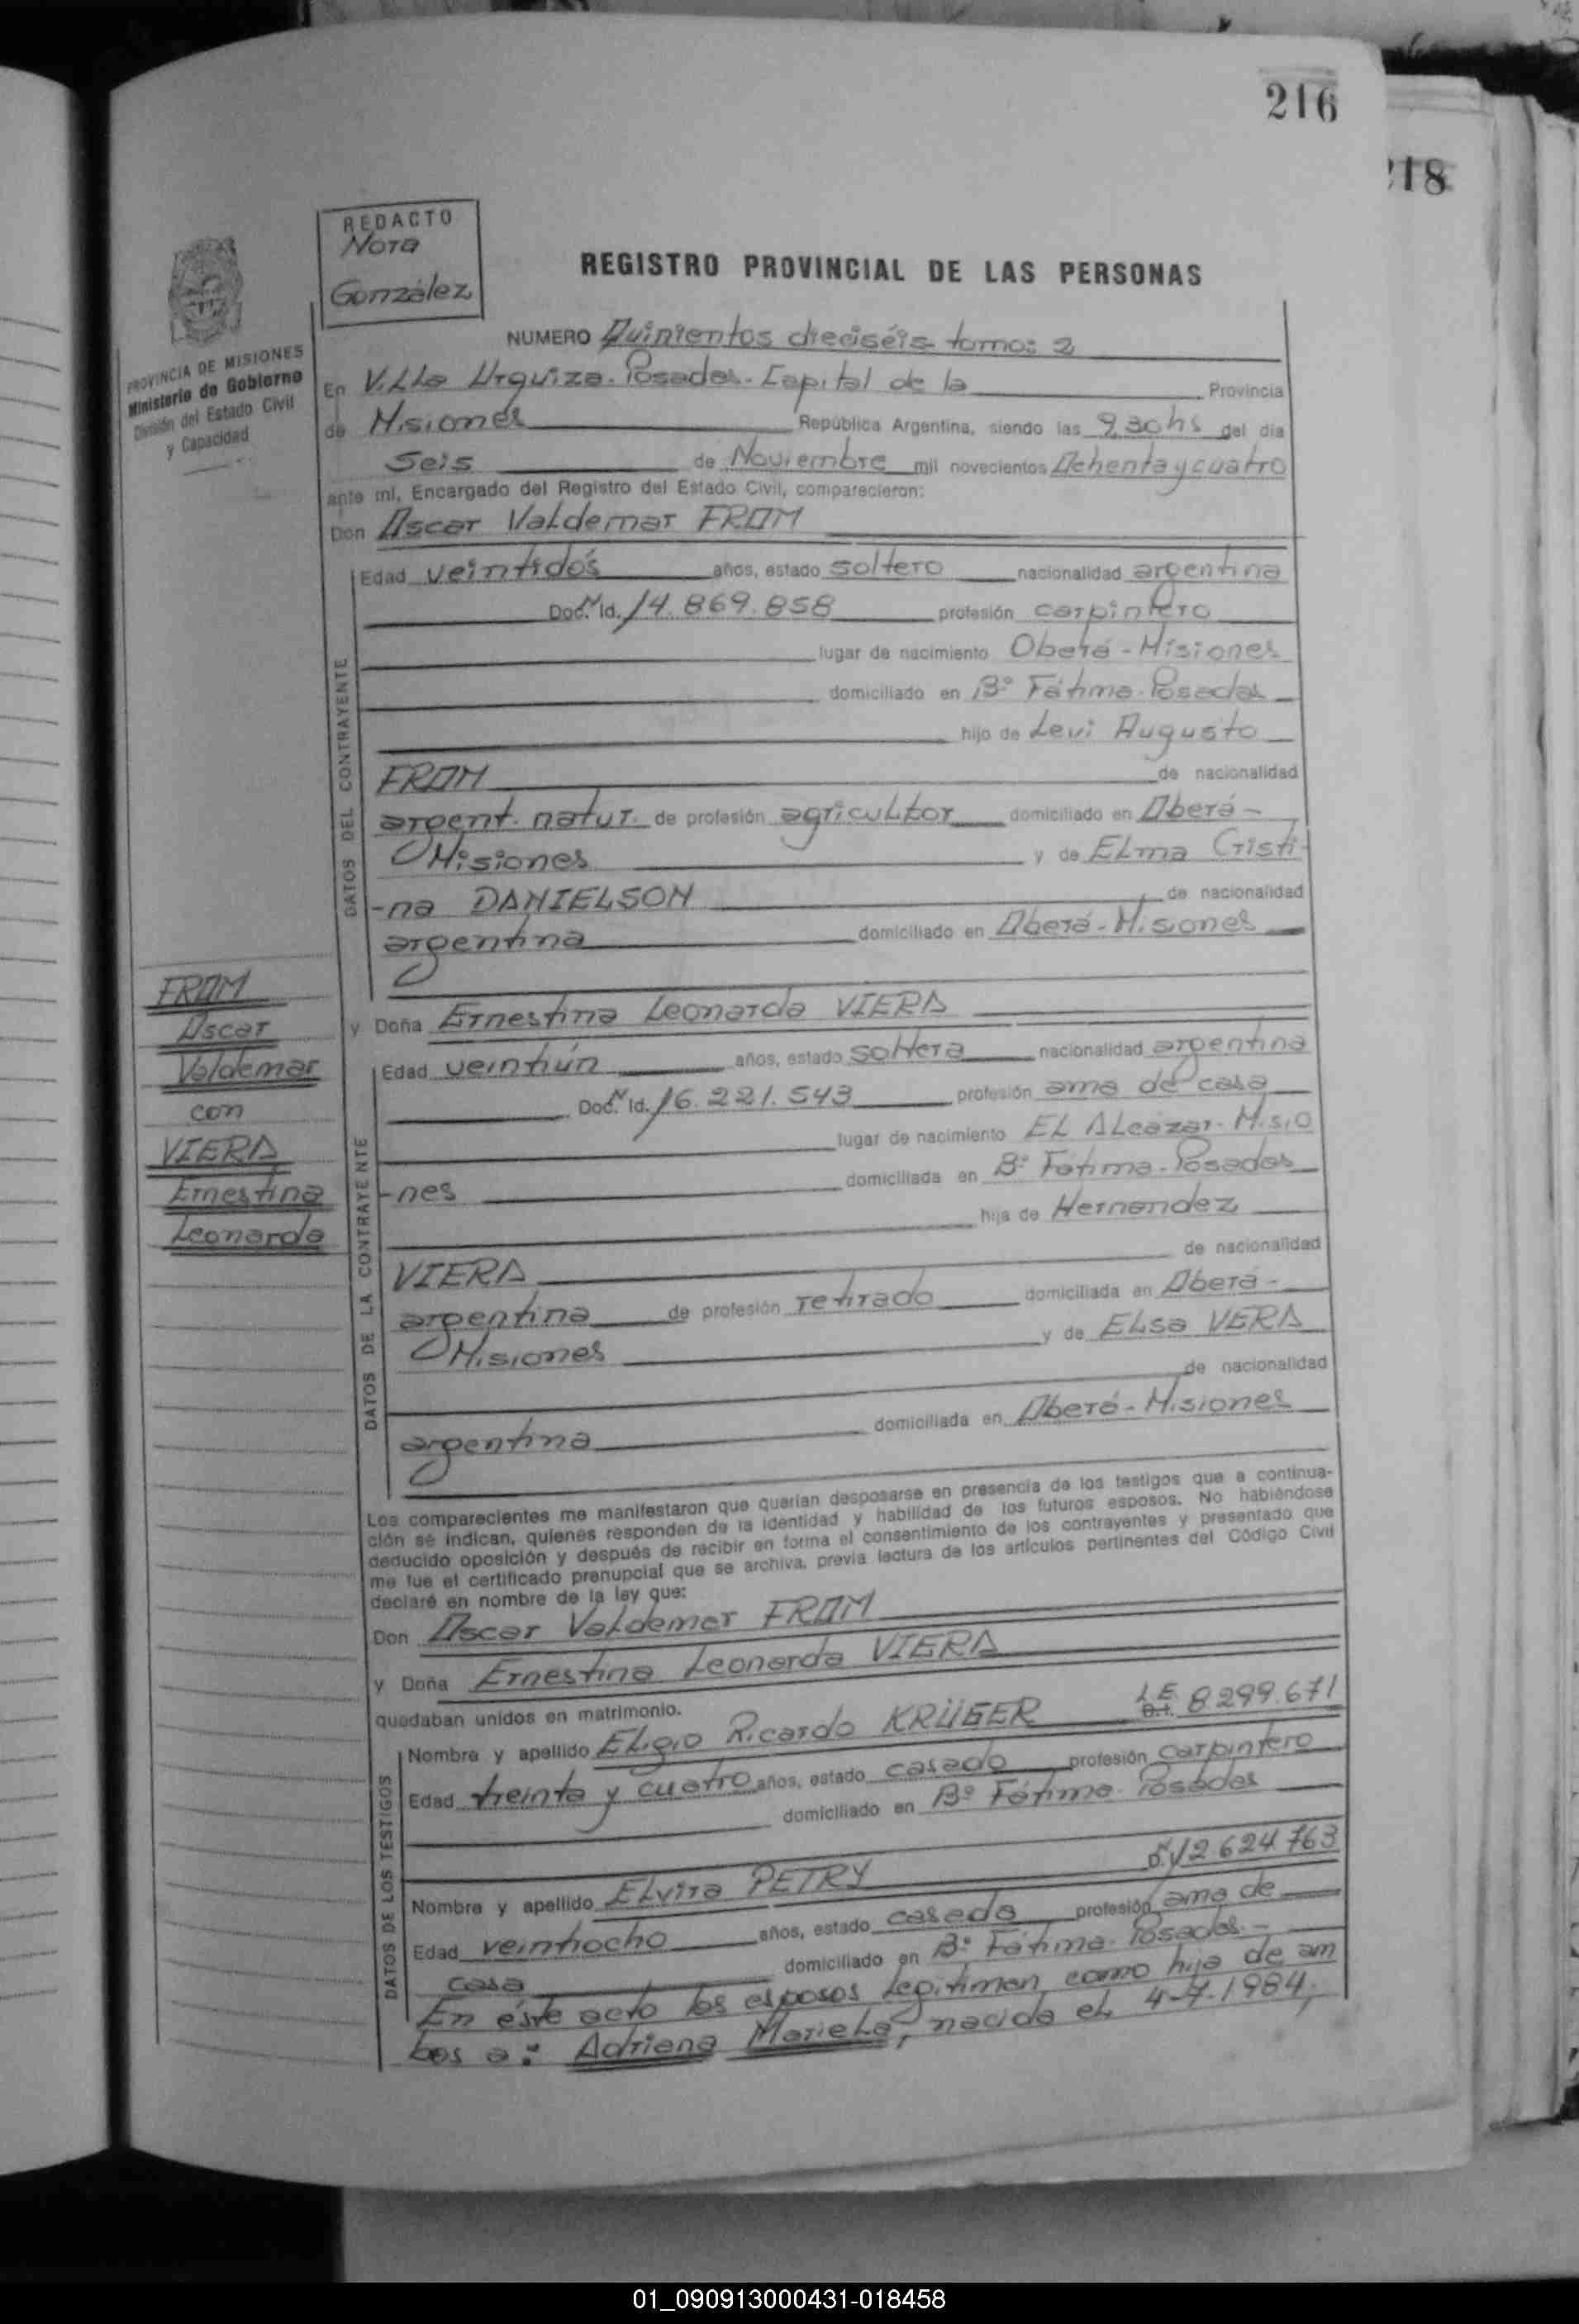 216
218
REDACTO
Nora
González
REGISTRO PROVINCIAL DE LAS PERSONAS
PROVINCIA DE MISIONES
Ministerio de Gobierno
División del Estado Civil
y Capacidad
NUMERO Quinientos dieciséis tomo: 2
En Villa Urquiza. Posadas. Capital de la Provincia
de Misiones República Argentina, siendo las 9,30 hs del día
Seis de Noviembre mil novecientos Ochenta y cuatro
ante mi, Encargado del Registro del Estado Civil, comparecieron:
Don Oscar Valdemar FROM
DATOS DEL CONTRAYENTE
Edad veintidós años, estado soltero nacionalidad argentina
Doc. Id. 14.869.858 profesión carpintero
lugar de nacimiento Oberá - Misiones
domiciliado en B° Fátima. Posadas
hijo de Levi Augusto
FROM de nacionalidad
argent. natur. de profesión agricultor domiciliado en Oberá -
Misiones y de Elma Cristi-
-na DANIELSON de nacionalidad
argentina domiciliado en Oberá - Misiones
FROM
Oscar
Valdemar
con
VIERA
Ernestina
Leonarda
y Doña Ernestina Leonarda VIERA
DATOS DE LA CONTRAYENTE
Edad veintiún años, estado soltera nacionalidad argentina
Doc. Id. 16.221.543 profesión ama de casa
lugar de nacimiento El Alcázar - Misio
-nes domiciliada en B° Fátima - Posadas
hija de Hernandez
VIERA de nacionalidad
argentina de profesión retirado domiciliada en Oberá -
Misiones y de Elsa VERA
de nacionalidad
argentina domiciliada en Oberá - Misiones
Los comparecientes me manifestaron que querían desposarse en presencia de los testigos que a continua-
ción se indican, quienes responden de la identidad y habilidad de los futuros esposos. No habiéndose
deducido oposición y después de recibir en forma el consentimiento de los contrayentes y presentado que
me fue el certificado prenupcial que se archiva, previa lectura de los artículos pertinentes del Código Civil
declaré en nombre de la ley que:
Don Oscar Valdemar FROM
y Doña Ernestina Leonarda VIERA
quedaban unidos en matrimonio.
DATOS DE LOS TESTIGOS
Nombre y apellido Eligio Ricardo KRÜGER L.E. 8299.671
Edad treinta y cuatro años, estado casado profesión carpintero
domiciliado en B° Fátima. Posadas
Nombre y apellido Elvira PETRY 12.624.763
Edad veintiocho años, estado casada profesión ama de
casa domiciliado en B° Fátima. Posadas. -
En éste acto los esposos legitiman como hija de am
bos a: Adriana Mariela, nacida el 4-7-1984.
01_090913000431-018458